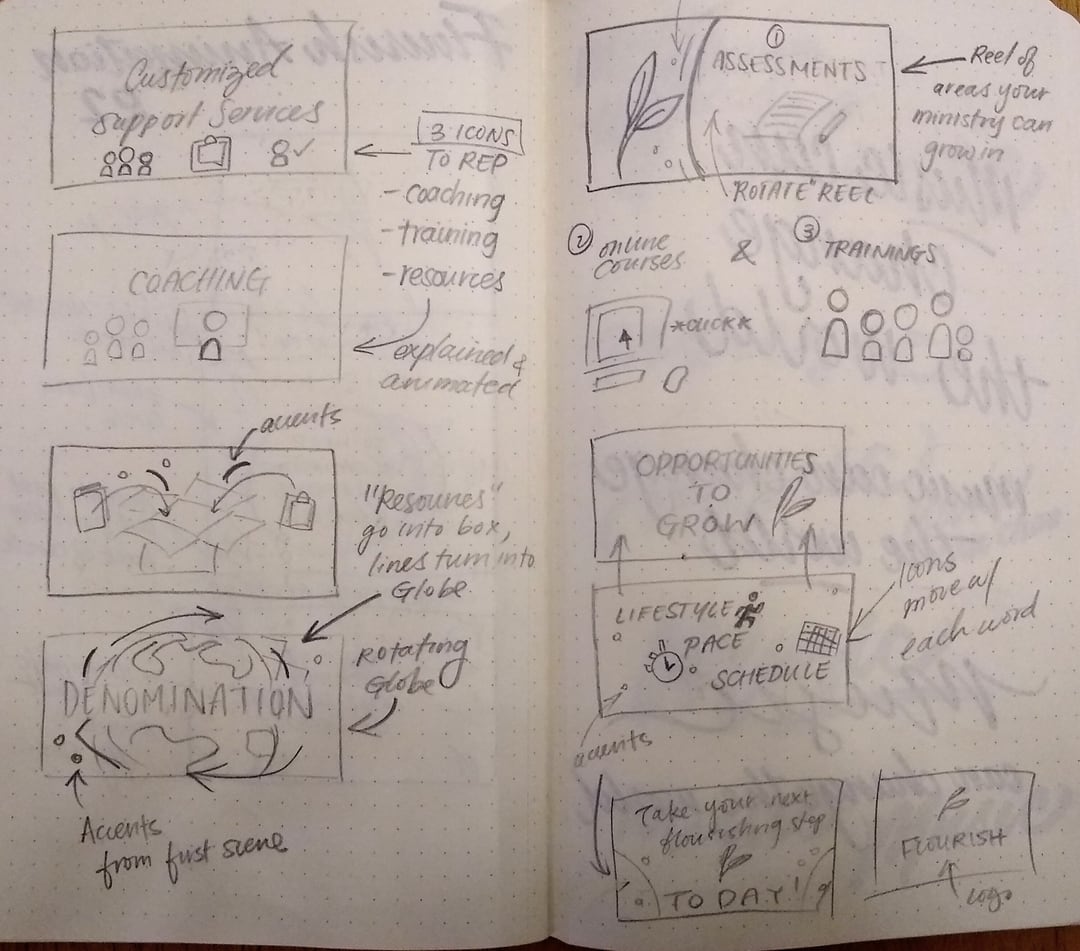 Customized
Support Services
3 ICONS
TO REP
- coaching
- training
- resources
COACHING
explained &
animated
accents
"Resources"
go into box,
lines turn into
Globe
DENOMINATION
Rotating
Globe
Accents
from first scene
① ASSESSMENTS
Reel of
areas your
ministry can
grow in
"ROTATE" REEL
② online
COURSES
&
③ TRAININGS
*CLICK*
OPPORTUNITIES
TO
GROW
LIFESTYLE
PACE
SCHEDULE
Icons
move w/
each word
accents
Take your next
flourishing step
TODAY!
FLOURISH
logo